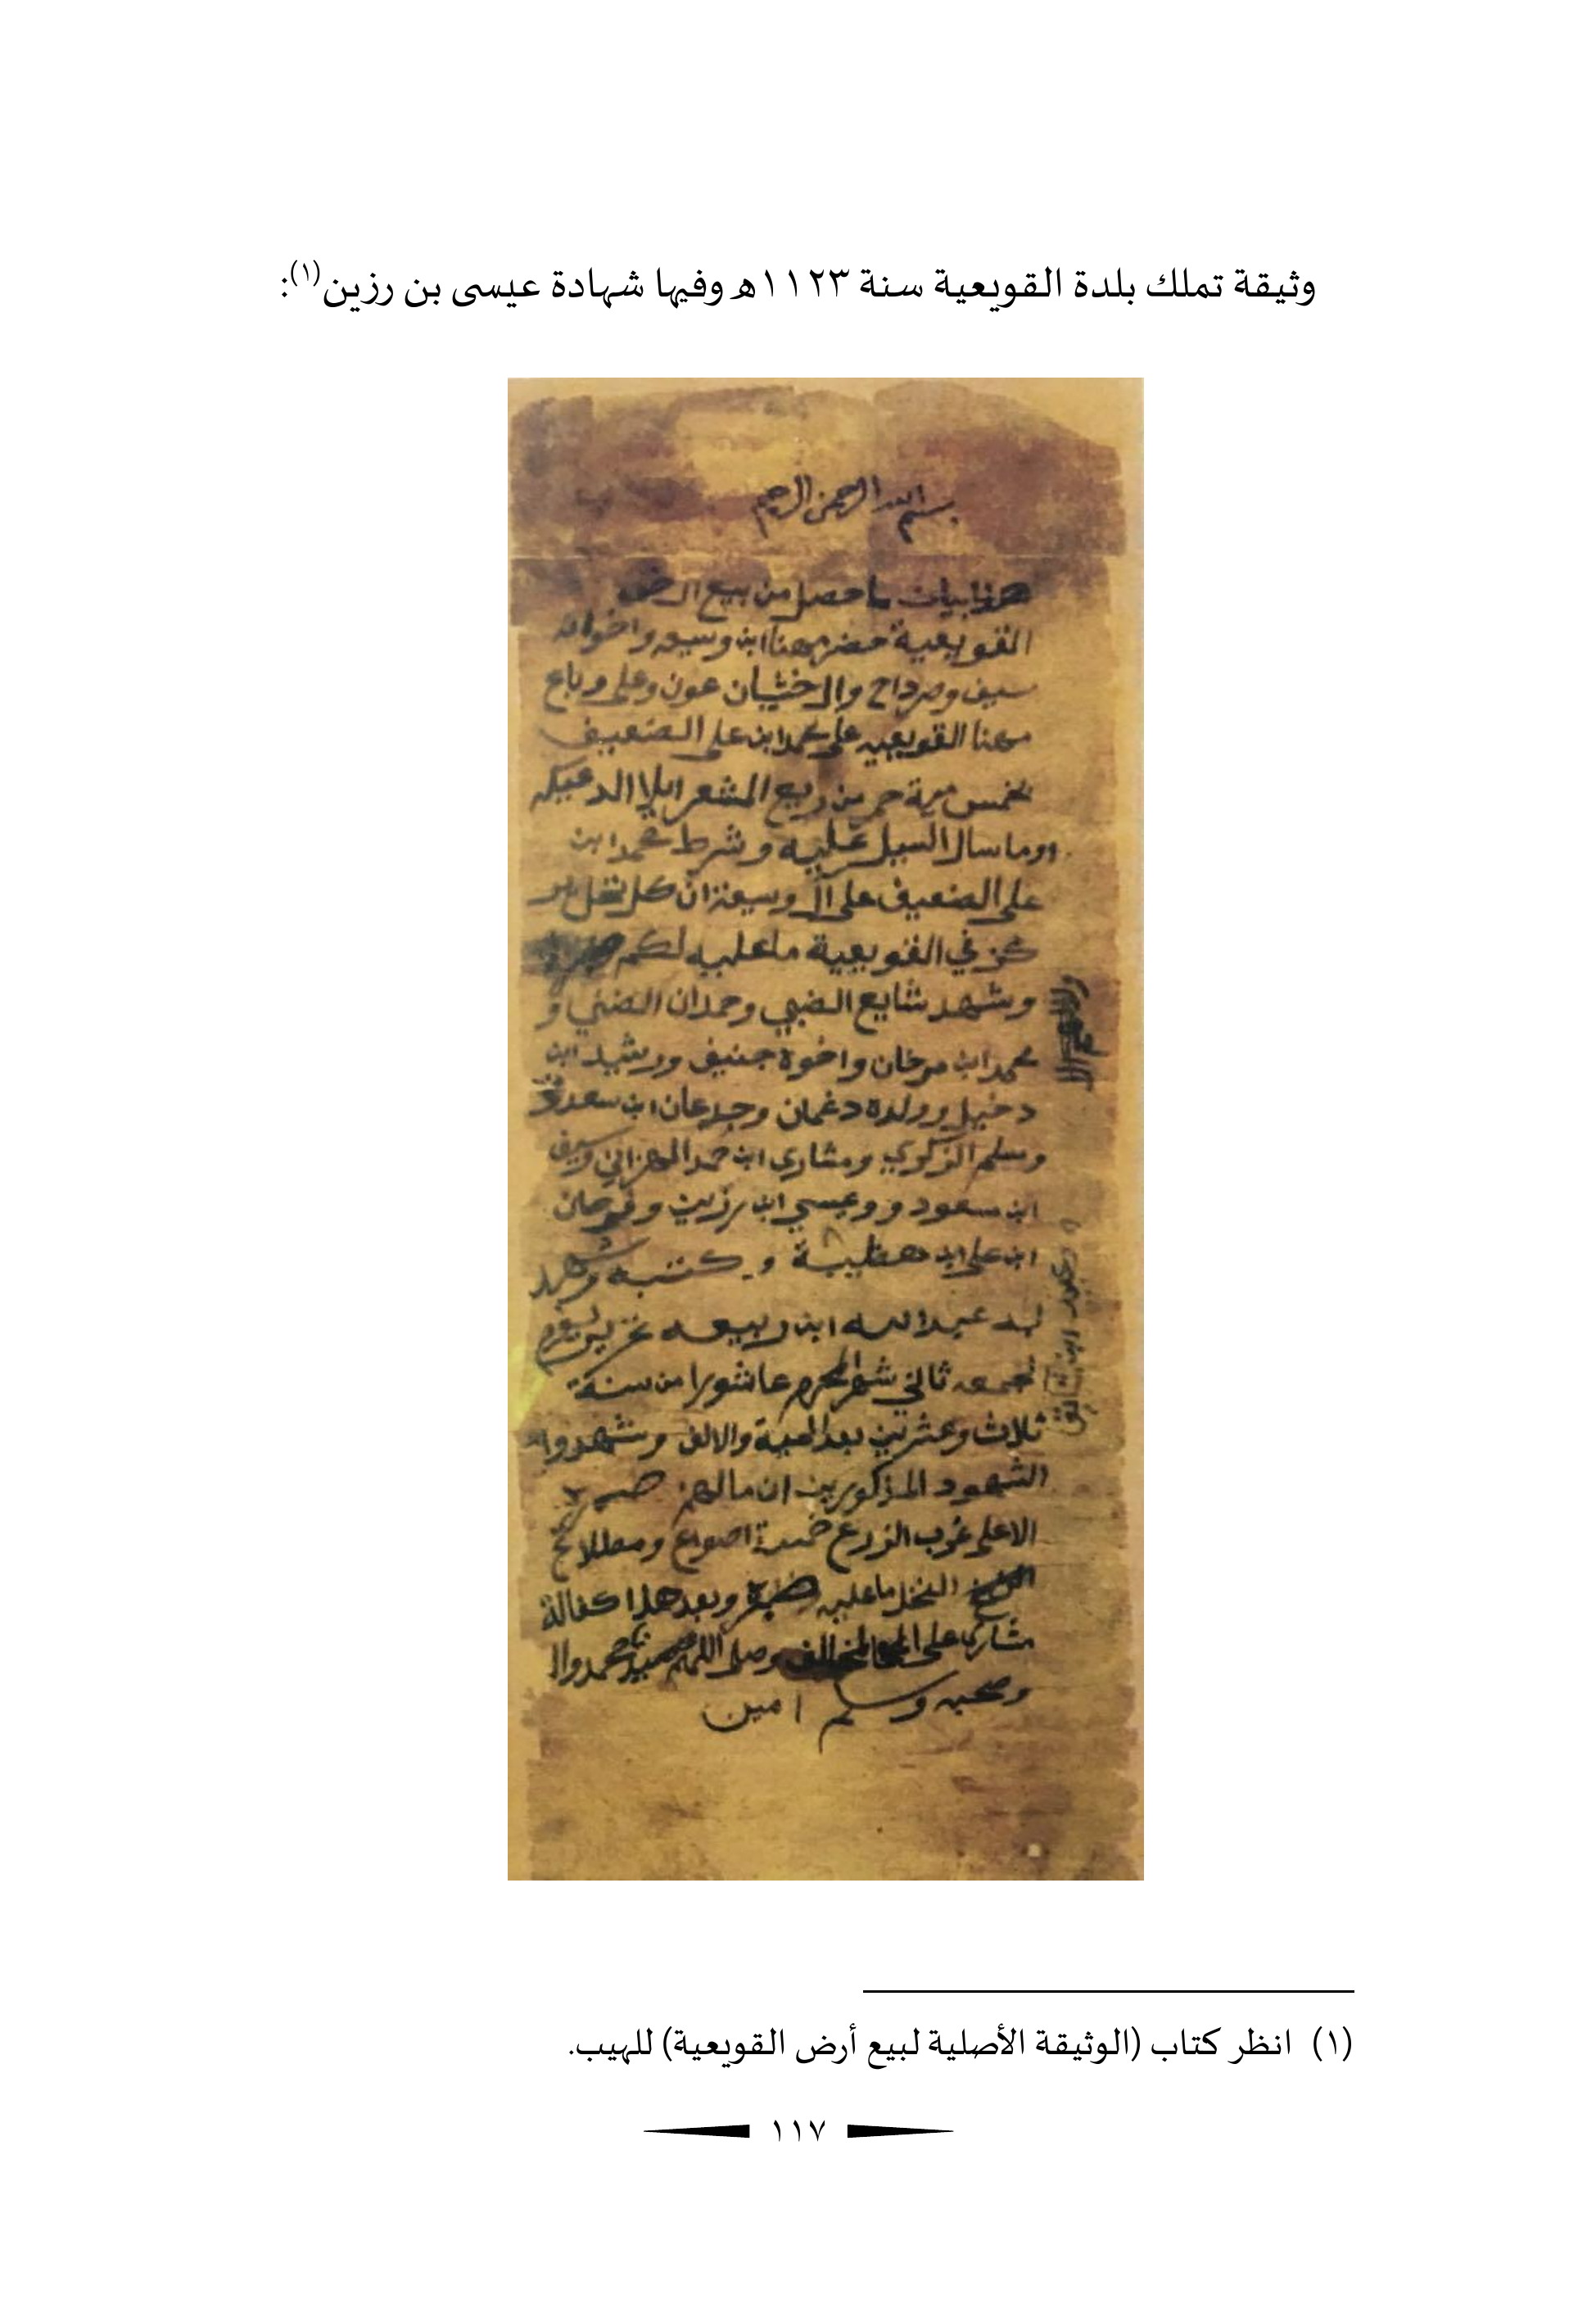 وثيقة تملك بلدة القويعية سنة ١١٢٣هـ وفيها شهادة عيسى بن رزين(١):
بسم الله الرحمن الرحيم
هذا بيان ما حصل من بيع
القويعية حضر مهنا ابن وسيمه واخوانه
سيف وصرداح وال خثيان عون وعلي وباع
مهنا القويعيه على محمد ابن علي الضعيف
بخمس مية حمر من ربع المشعر
وما سال السيل عليه وشرط محمد ابن
علي الضعيف على آل وسيمة ان كل نخل
في القويعية ما عليه لكم صبرة
وشهد شايع الضبي وحمدان الضني و
محمد ابن مرخان واخوه جنيف ورشيد ابن
دخيل وولده دغمان وجدعان ابن سعدون
وسلم الزكوي ومشاري ابن حمد الهزاني وسيف
ابن سعود و وعيسي ابن رزين وفرحان
ابن علي ابن وكتبه وشهد
به عبد الله ابن ربيعه
ثاني شهر المحرم عاشورا من سنة
ثلاث وعشرين بعد المية والالف وشهدوا
الشهود المذكورين ان مالهم صبرة
الا على غرب الزرع خمسة اصواع
النخل ما عليه صبرة وبعد هذا كفالة
مشاري على وصلى اللهم محمد وال
وصحبه وسلم امين
(١) انظر كتاب (الوثيقة الأصلية لبيع أرض القويعية) للهيب.
١١٧